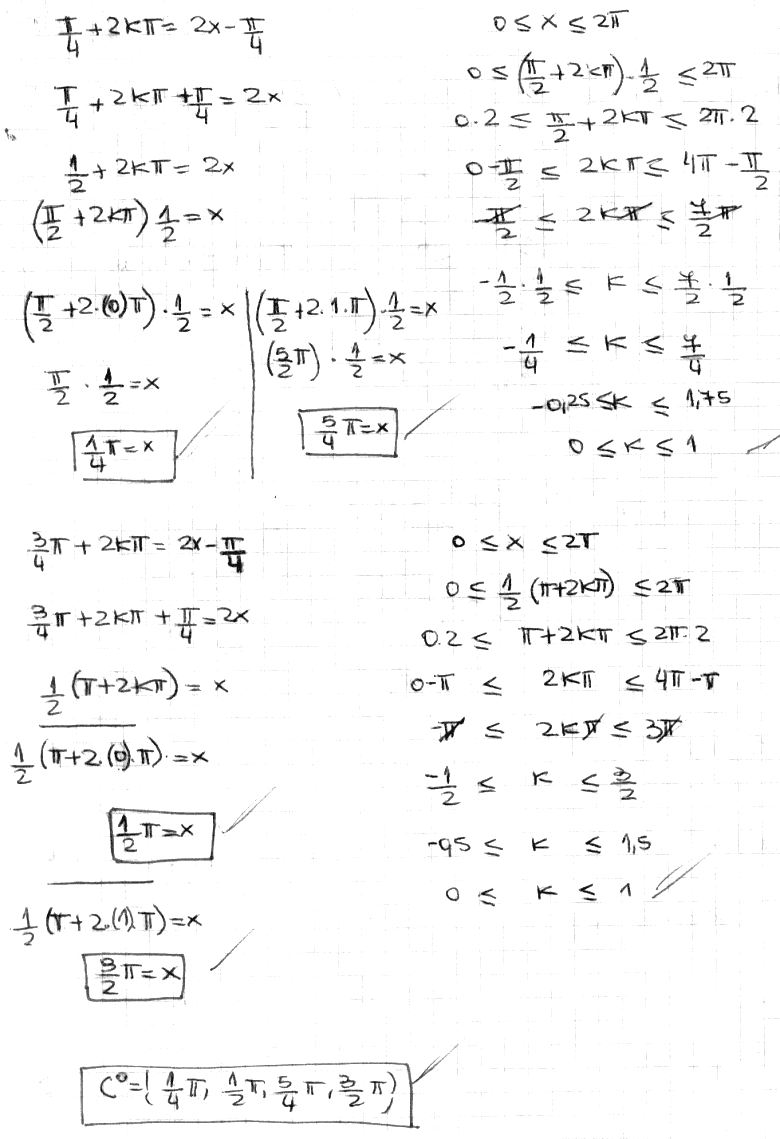 π/4 + 2kπ = 2x - π/4
π/4 + 2kπ + π/4 = 2x
1/2 + 2kπ = 2x
(π/2 + 2kπ) 1/2 = x
(π/2 + 2·(0)π) · 1/2 = x
π/2 · 1/2 = x
1/4 π = x
(π/2 + 2·1·π) · 1/2 = x
(5/2 π) · 1/2 = x
5/4 π = x
0 ≤ x ≤ 2π
0 ≤ (π/2 + 2kπ) · 1/2 ≤ 2π
0·2 ≤ π/2 + 2kπ ≤ 2π·2
0 - π/2 ≤ 2kπ ≤ 4π - π/2
-π/2 ≤ 2kπ ≤ 7/2 π
-1/2 · 1/2 ≤ k ≤ 7/2 · 1/2
-1/4 ≤ k ≤ 7/4
-0,25 ≤ k ≤ 1,75
0 ≤ k ≤ 1
3/4 π + 2kπ = 2x - π/4
3/4 π + 2kπ + π/4 = 2x
1/2 (π + 2kπ) = x
1/2 (π + 2·(0)·π) = x
1/2 π = x
1/2 (π + 2·(1)π) = x
3/2 π = x
0 ≤ x ≤ 2π
0 ≤ 1/2 (π + 2kπ) ≤ 2π
0·2 ≤ π + 2kπ ≤ 2π·2
0 - π ≤ 2kπ ≤ 4π - π
-π ≤ 2kπ ≤ 3π
-1/2 ≤ k ≤ 3/2
-0,5 ≤ k ≤ 1,5
0 ≤ k ≤ 1
C° = { 1/4 π, 1/2 π, 5/4 π, 3/2 π }